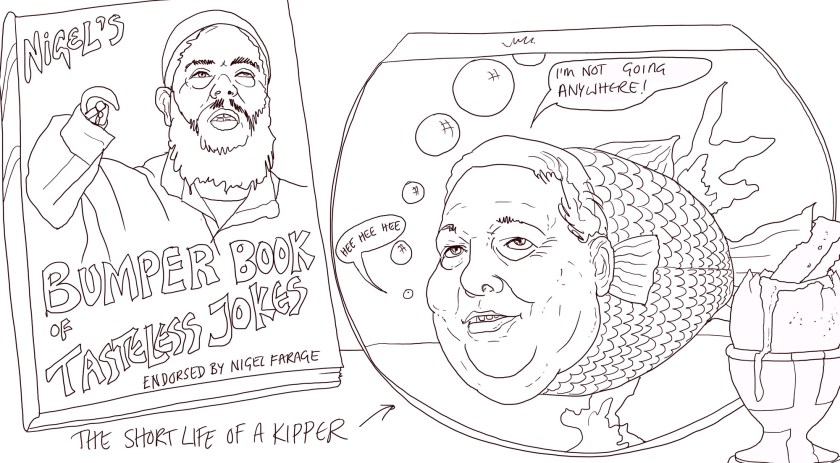 NiGEL'S
BUMPER BOOK
OF
TASTELESS JOKES
ENDORSED BY NIGEL FARAGE
I'M NOT GOING
ANYWHERE!
HEE HEE HEE
THE SHORT LIFE OF A KIPPER